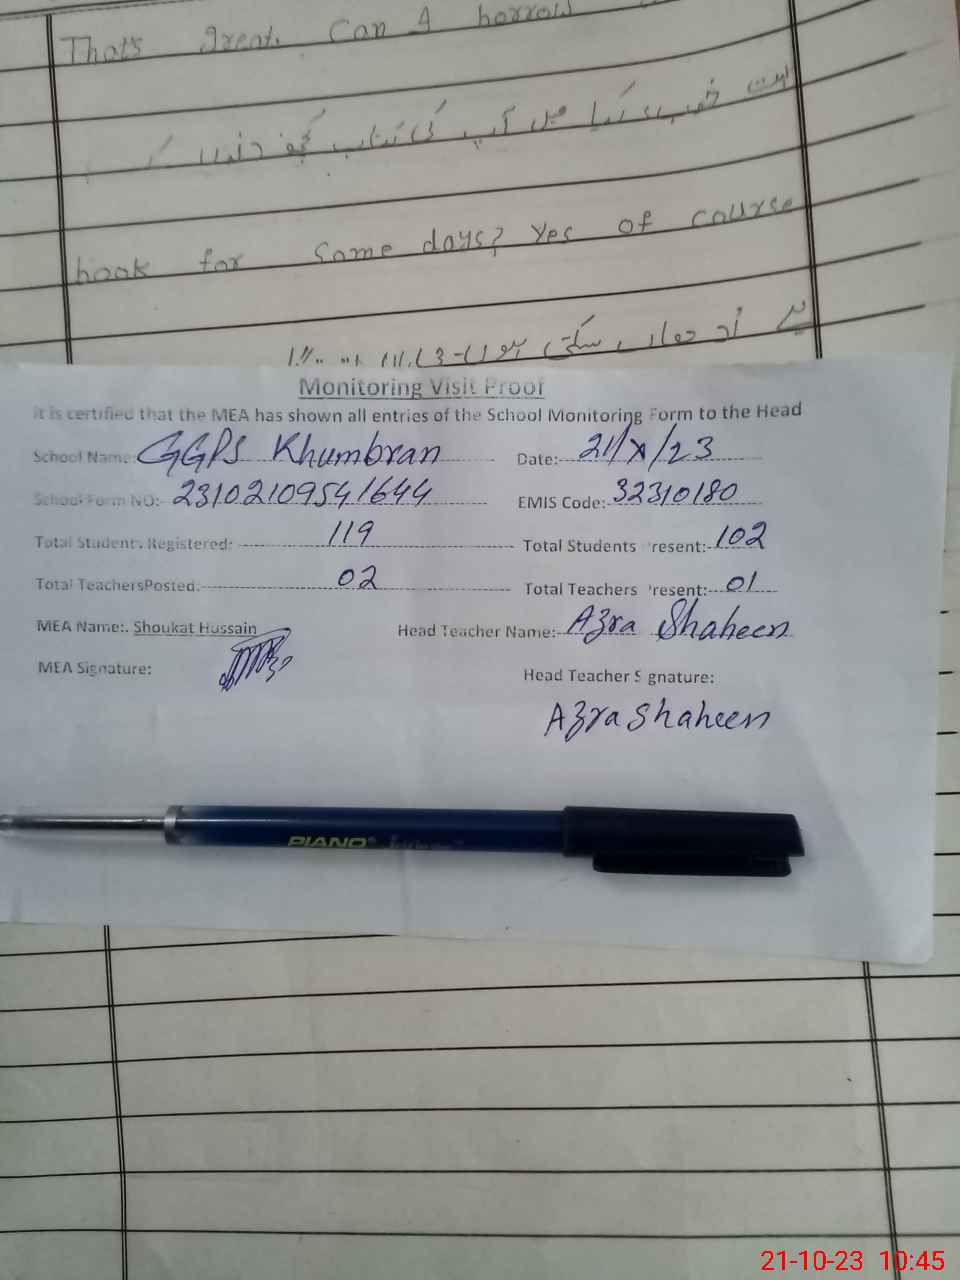 That's great. Can I borrow
بہت خوب۔ کیا میں آپ کی کتاب کچھ دنوں کے
book for some days? Yes of course
لیے اُدھار لے سکتی ہوں
Monitoring Visit Proof
It is certified that the MEA has shown all entries of the School Monitoring Form to the Head
School Name: GGPS Khumbran Date: 21/X/23
School Form NO: 23102109541644 EMIS Code: 32310180
Total Students Registered: 119 Total Students Present: 102
Total TeachersPosted: 02 Total Teachers Present: 01
MEA Name:. Shoukat Hussain Head Teacher Name: Azra Shaheen
MEA Signature: Head Teacher Signature:
Azra Shaheen
PIANO
21-10-23 10:45